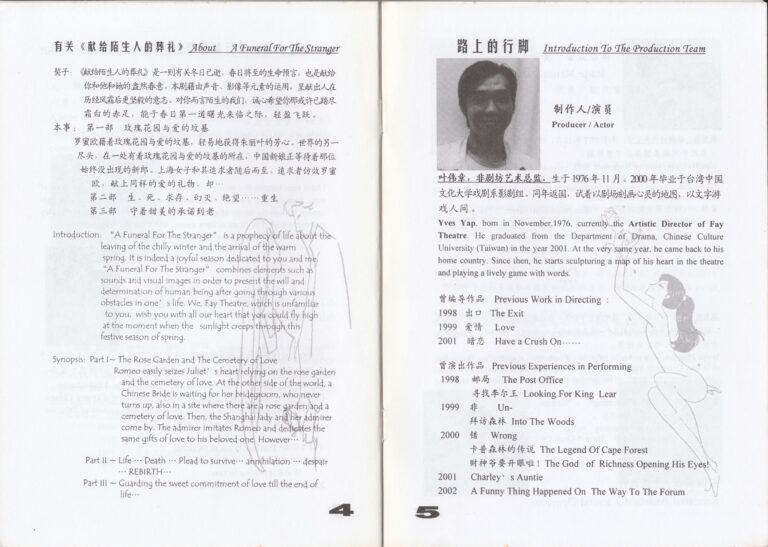 有关《献给陌生人的葬礼》 About A Funeral For The Stranger
契子：《献给陌生人的葬礼》是一则有关冬日已逝，春日将至的生命预言，也是献给
你和他和她的盎然春意。本剧藉由声音、影像等元素的运用，呈献出人在
历经风霜后更坚毅的意志。对你而言陌生的我们，诚心希望你那或许已踏尽
霜白的赤足，能于春日第一道曙光来临之际，轻盈飞跃。
本事： 第一部 玫瑰花园与爱的坟墓
罗蜜欧藉着玫瑰花园与爱的坟墓，轻易地获得朱丽叶的芳心。世界的另一
尽头，在一处有着玫瑰花园与爱的坟墓的所在，中国新娘正等待着那位
始终没出现的新郎。上海女子和其追求者随后而至，追求者仿效罗蜜
欧，献上同样的爱的礼物，却…
第二部 生、死、求存、幻灭、绝望……重生
第三部 守着甜美的承诺到老
Introduction: “A Funeral For The Stranger” is a prophecy of life about the
leaving of the chilly winter and the arrival of the warm
spring. It is indeed a joyful season dedicated to you and me
“A Funeral For The Stranger” combines elements such as
sounds and visual images in order to present the will and
determination of human being after going through various
obstacles in one’s life. We, Fay Theatre, which is unfamiliar
to you, wish you with all our heart that you could fly high
at the moment when the sunlight creeps through this
festive season of spring.
Synopsis: Part I~ The Rose Garden and The Cemetery of Love
Romeo easily seizes Juliet’s heart relying on the rose garden
and the cemetery of love. At the other side of the world, a
Chinese Bride is waiting for her bridegroom, who never
turns up, also in a site where there are a rose garden and a
cemetery of love. Then, the Shanghai lady and her admirer
come by. The admirer imitates Romeo and dedicates the
same gifts of love to his beloved one. However…
Part II ~ Life … Death … Plead to survive… annihilation … despair
… REBIRTH…
Part III ~ Guarding the sweet commitment of love till the end of
life…
4
路上的行脚 Introduction To The Production Team
制作人/演员
Producer / Actor
叶伟章，非剧坊艺术总监，生于1976年11月。2000年毕业于台湾中国
文化大学戏剧系影剧组。同年返国，试着以剧场刻画心灵的地图，以文字游
戏人间。
Yves Yap, born in November,1976, currently the Artistic Director of Fay
Theatre. He graduated from the Department of Drama, Chinese Culture
University (Taiwan) in the year 2001. At the very same year, he came back to his
home country. Since then, he starts sculpturing a map of his heart in the theatre
and playing a lively game with words.
曾编导作品 Previous Work in Directing :
1998 出口 The Exit
1999 爱情 Love
2001 暗恋 Have a Crush On……
曾演出作品 Previous Experiences in Performing
1998 邮局 The Post Office
寻找李尔王 Looking For King Lear
1999 非 Un-
拜访森林 Into The Woods
2000 错 Wrong
卡普森林的传说 The Legend Of Cape Forest
财神爷要开眼啦！The God of Richness Opening His Eyes!
2001 Charley’s Auntie
2002 A Funny Thing Happened On The Way To The Forum
5